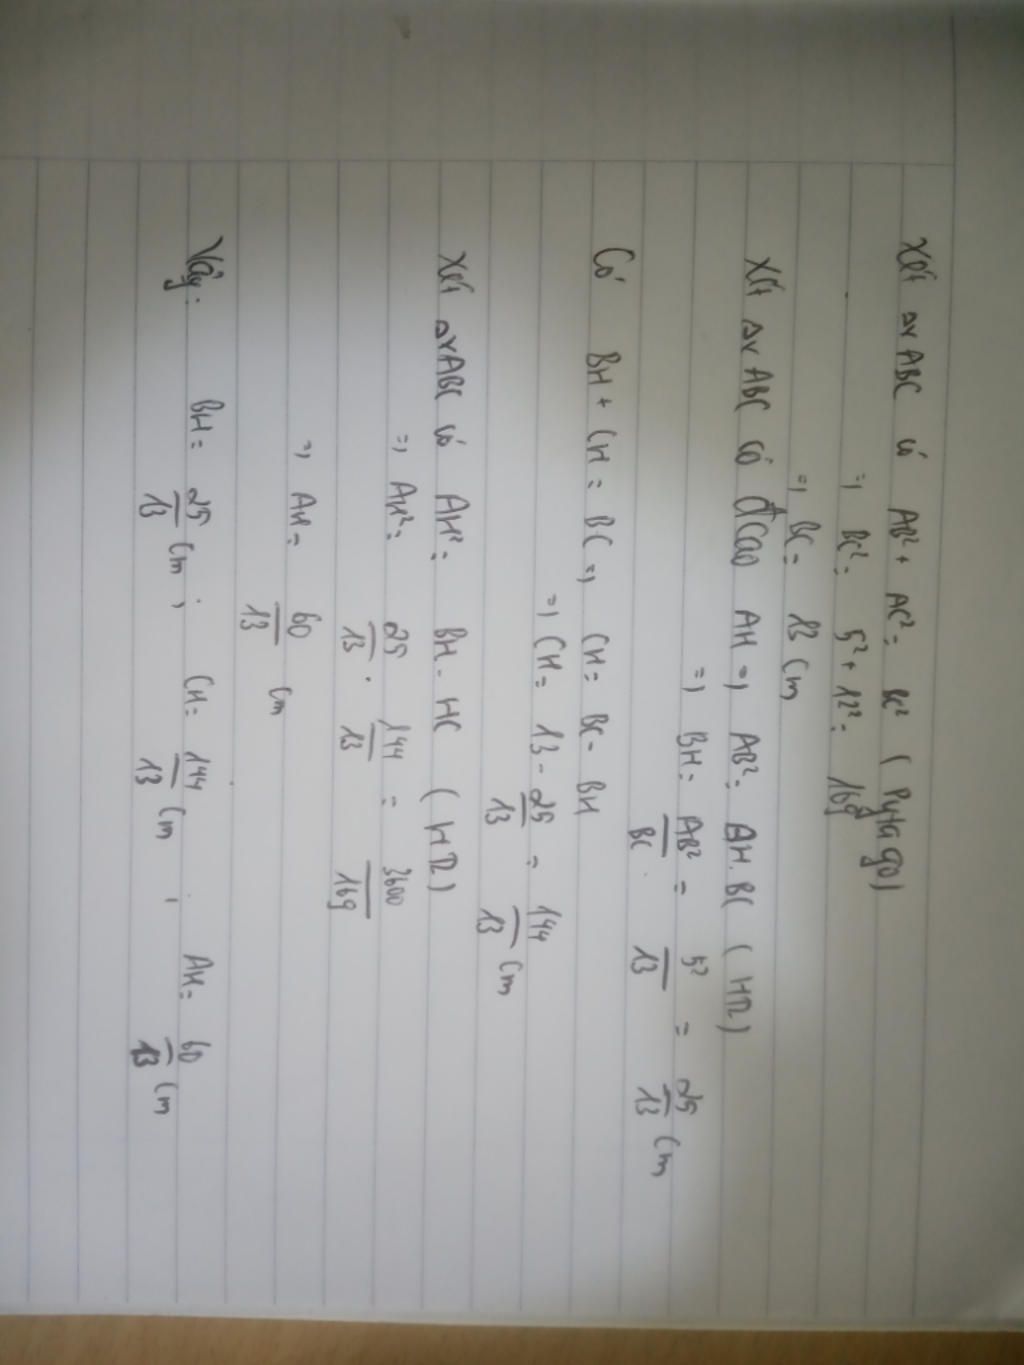 Xét ΔvABC có AB² + AC² = BC² (Pytago)
=> BC² = 5² + 12² = 169
=> BC = 13 cm
Xét ΔvABC có đcao AH => AB² = BH.BC (HTL)
=> BH = AB²/BC = 5²/13 = 25/13 cm
Có BH + CH = BC => CH = BC - BH
=> CH = 13 - 25/13 = 144/13 cm
Xét ΔvABC có AH² = BH . HC (HTL)
=> AH² = 25/13 . 144/13 = 3600/169
=> AH = 60/13 cm
Vậy: BH = 25/13 cm, CH = 144/13 cm, AH = 60/13 cm